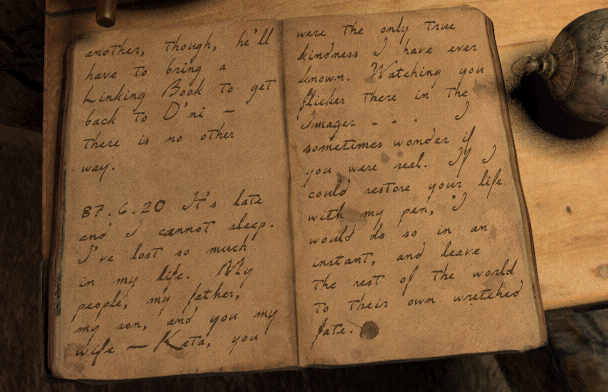 another, though, he'll
have to bring a
Linking Book to get
back to D'ni —
there is no other
way.
87.6.20 It's late
and I cannot sleep.
I've lost so much
in my life. My
people, my father,
my son, and you my
wife — Keta, you
were the only true
kindness I have ever
known. Watching you
flicker there in the
Imager . . . I
sometimes wonder if
you were real. If I
could restore your life
with my pen, I
would do so in an
instant, and leave
the rest of the world
to their own wretched
fate.